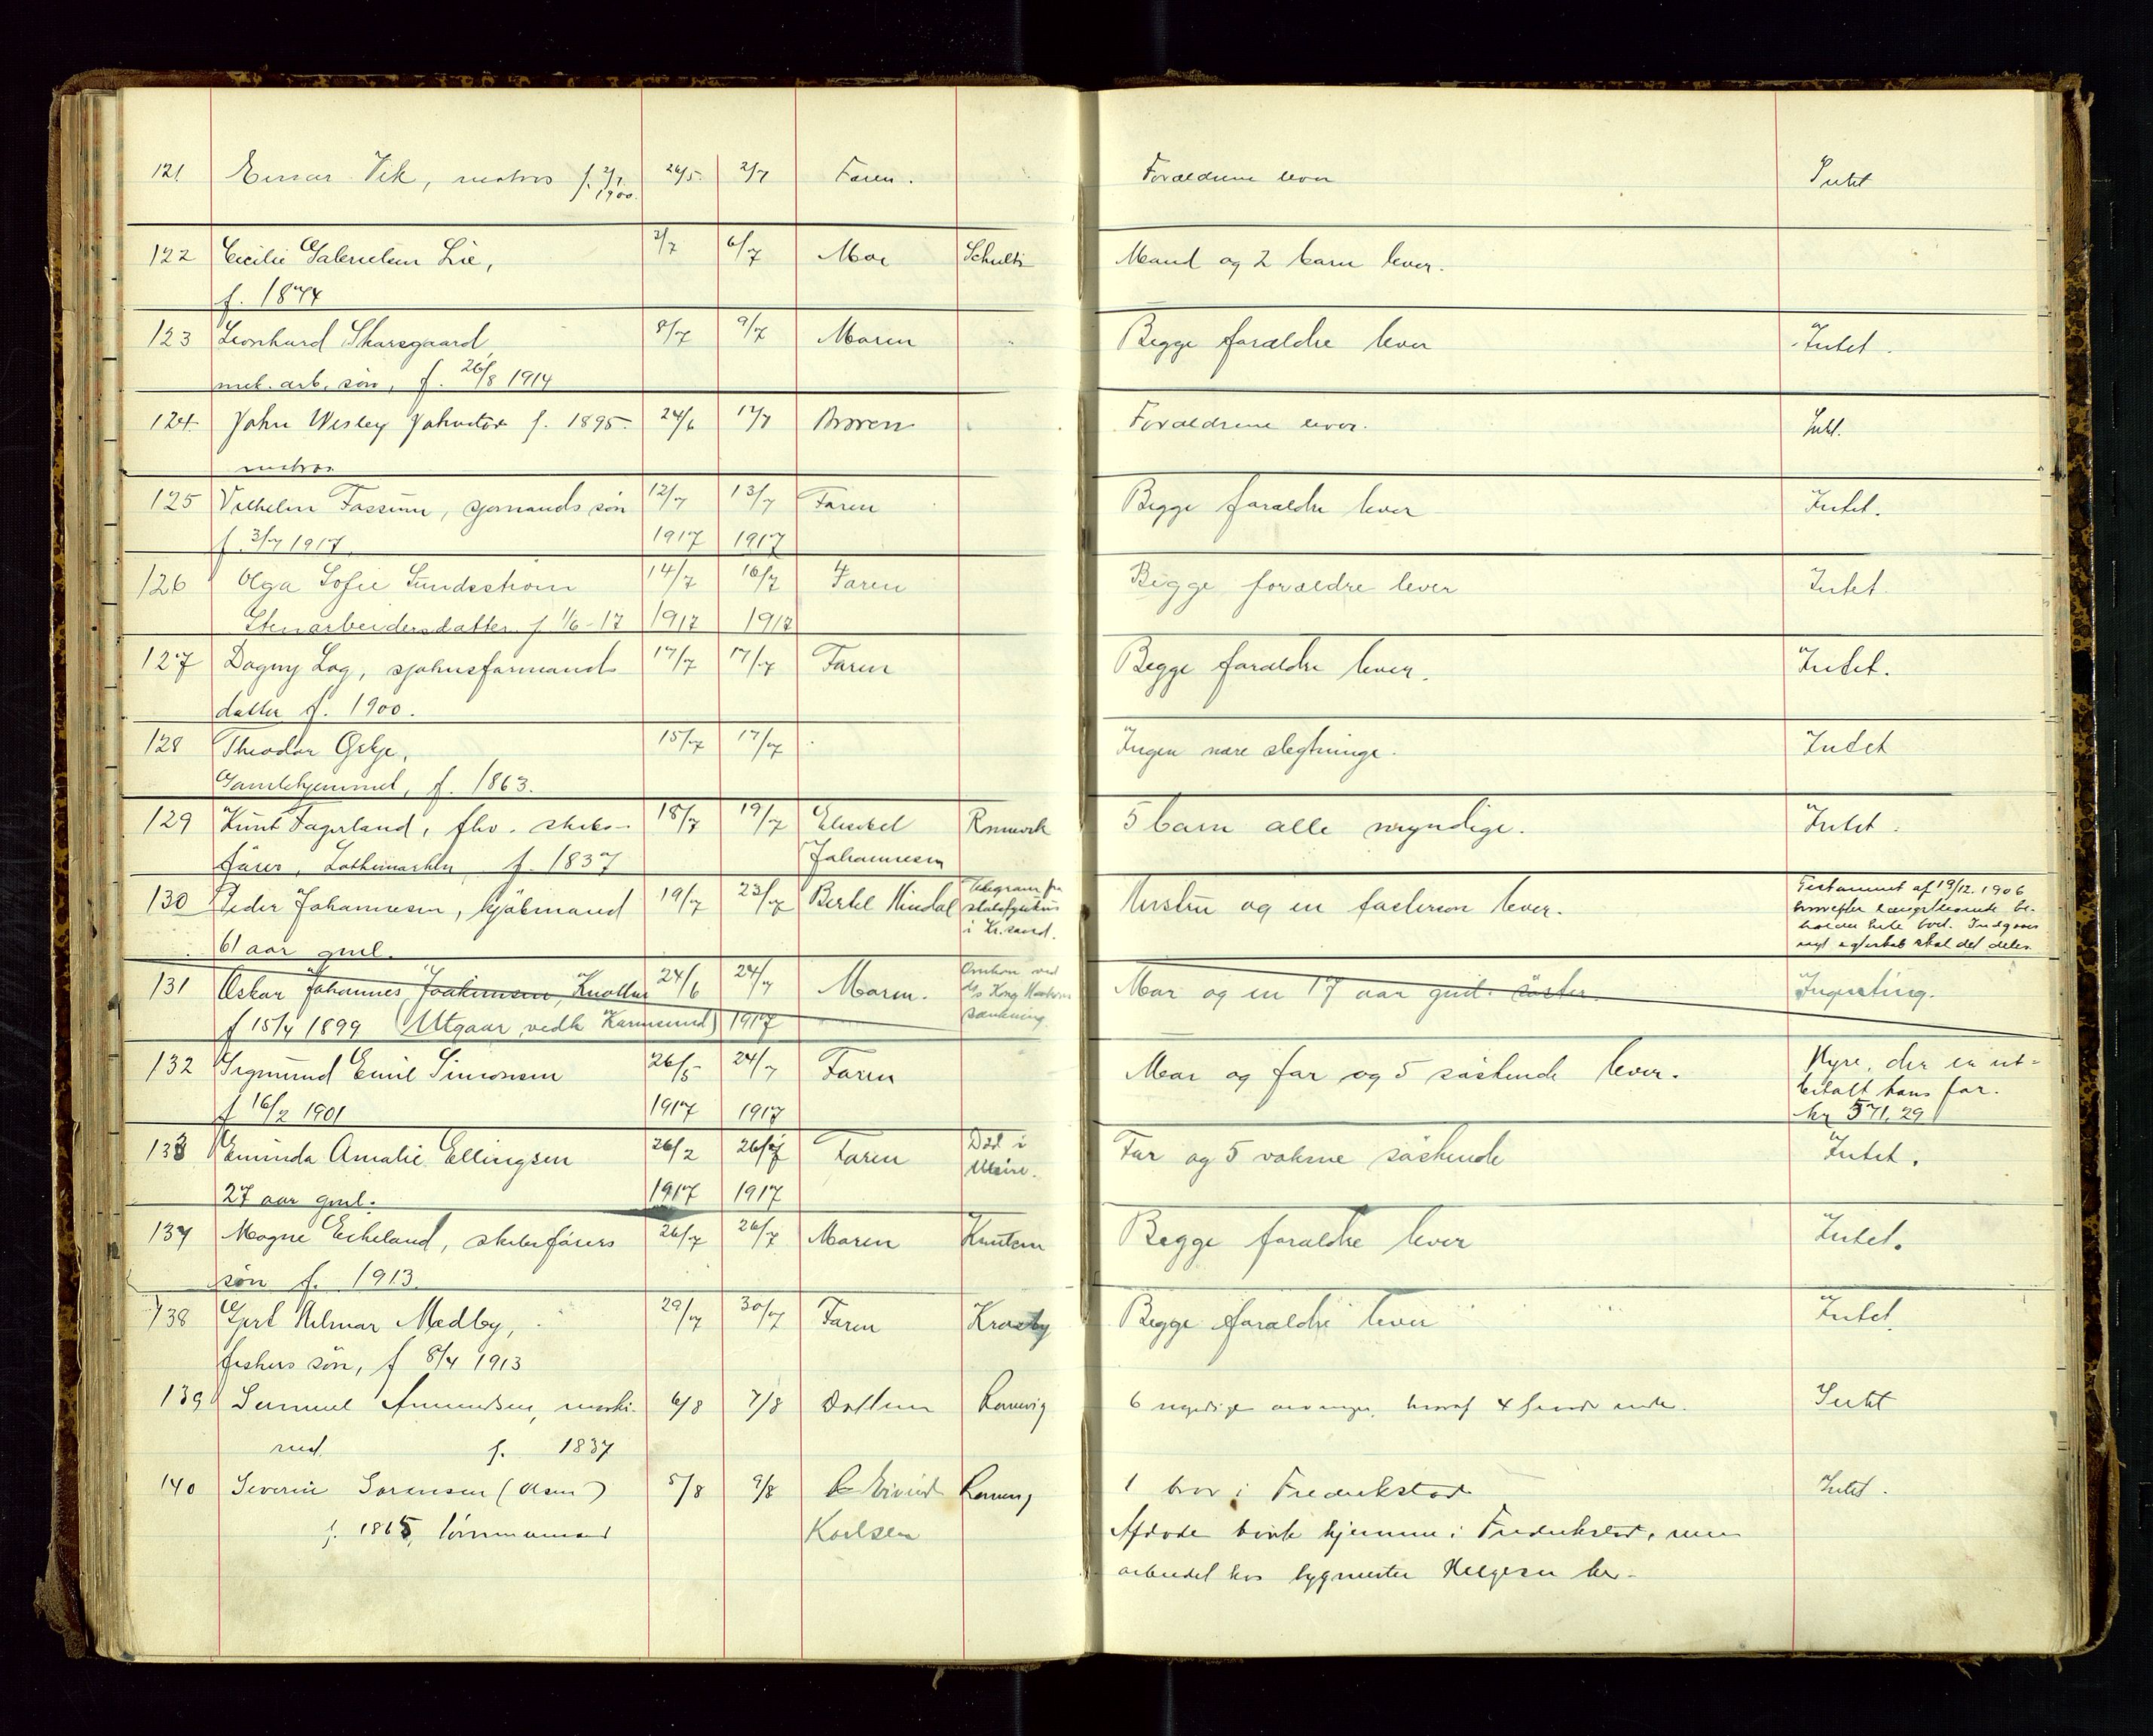 121 Einar Vik, matros f. 2/7 1900. 26/5 2/7 Faren. Forældrene lever Intet
122 Cecilie Gabrielsen Lie, 3/7 6/7 Mor Schultz Mand og 2 barn lever.
f. 1844
123 Leonhard Skarsgaard, 8/7 9/7 Moren Begge forældre lever Intet.
mek. arb. søn, f. 26/8 1914
124 John Wesley f. 1895. 24/6 12/7 Broren Forældrene lever. Intet.
matros
125 Vilhelm Fassum, sjømands søn 12/7 13/7 Faren Begge forældre lever Intet.
f. 3/7 1917. 1917 1917
126 Olga Sofie Sundsstrøm 14/7 16/7 Faren Begge forældre lever Intet.
Stenarbeidersdatter f 11/6-17 1917 1917
127 Dagny Log, sjøhusformands 17/7 17/7 Faren Begge forældre lever. Intet.
datter f. 1900.
128 Theodor Gekje, 15/7 17/7 Ingen nære slegtninge. Intet
Gamlehjemmet, f. 1863.
129 Knut Fagerland, fhv. skibs- 18/7 19/7 Elisabet 5 barn alle myndige. Intet.
fører, f. 1837 Johannesen
130 Peder Johannesen, kjøbmand 19/7 23/7 Bertel Mindal Telegram fra statsfysikus i Kr.sand. Hustru og en fostersøn lever. Testament af 19/12. 1906
hvorefter længstlevende be-
holder hele boet. Indgaaes
nyt egteskab skal det deles
61 aar gml.
131 Oskar Johannes Joakimsen, 24/6 24/7 Moren. Omkom ved D/s Kong Haakons sænkning. Mor og en 17 aar gml. søster. Ingenting.
f 15/4 1899 (Utgaar, vedk Karmsund) 1917
132 Sigmund Emil Simonsen 26/5 24/7 Faren Mor og far og 5 søskende lever. Hyre, der er ut-
betalt hans far.
kr 571,29
f 16/2 1901 1917 1917
133 Eminda Amalie Ellingsen 26/2 26/7 Faren Død i Far og 5 voksne søskende Intet.
27 aar gml. 1917 1917
137 Magne Eikeland, skibsførers 26/7 26/7 Moren Knutsen Begge forældre lever Intet.
søn f. 1913.
138 Gert Hilmar Medby, 29/7 30/7 Faren Krosby Begge forældre lever Intet.
fiskers søn, f 8/4 1913
139 Samuel Amundsen, maski- 6/8 7/8 Datteren Rønnevig 6 myndige arvinger, hvoraf 4 Intet
nist. f. 1837
140 Severin Sørensen (Olsen) 5/8 9/8 Eivind Rønnevig 1 bror i Fredrikstad Intet.
f. 1865, tømmermand Karlsen Afdøde havde hjemme i Fredrikstad, men
arbeidet hos bygmester Helgesen her.